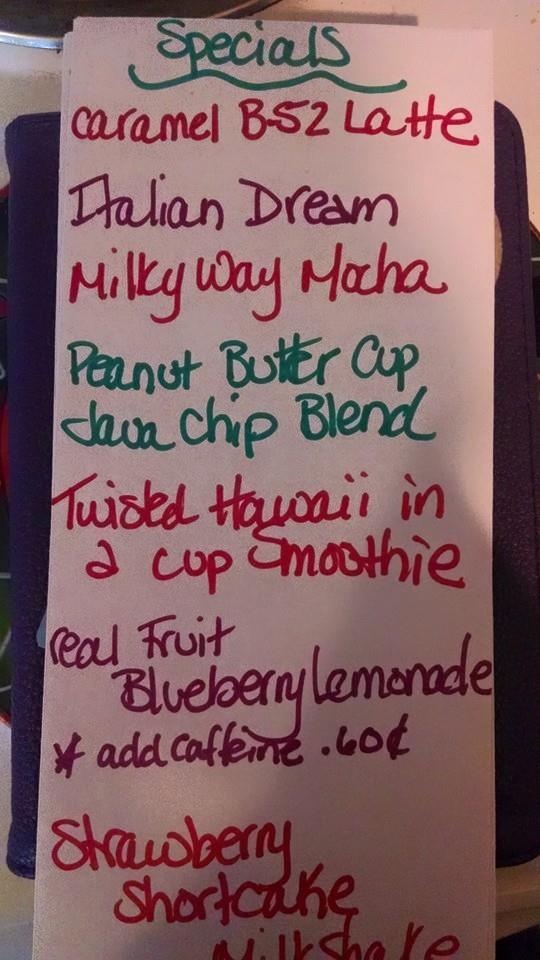 Specials
caramel B-52 Latte
Italian Dream
Milky Way Mocha
Peanut Butter Cup
Java Chip Blend
Twisted Hawaii in
a cup Smoothie
real Fruit
Blueberry Lemonade
* add caffeine .60¢
Strawberry
Shortcake
Milkshake